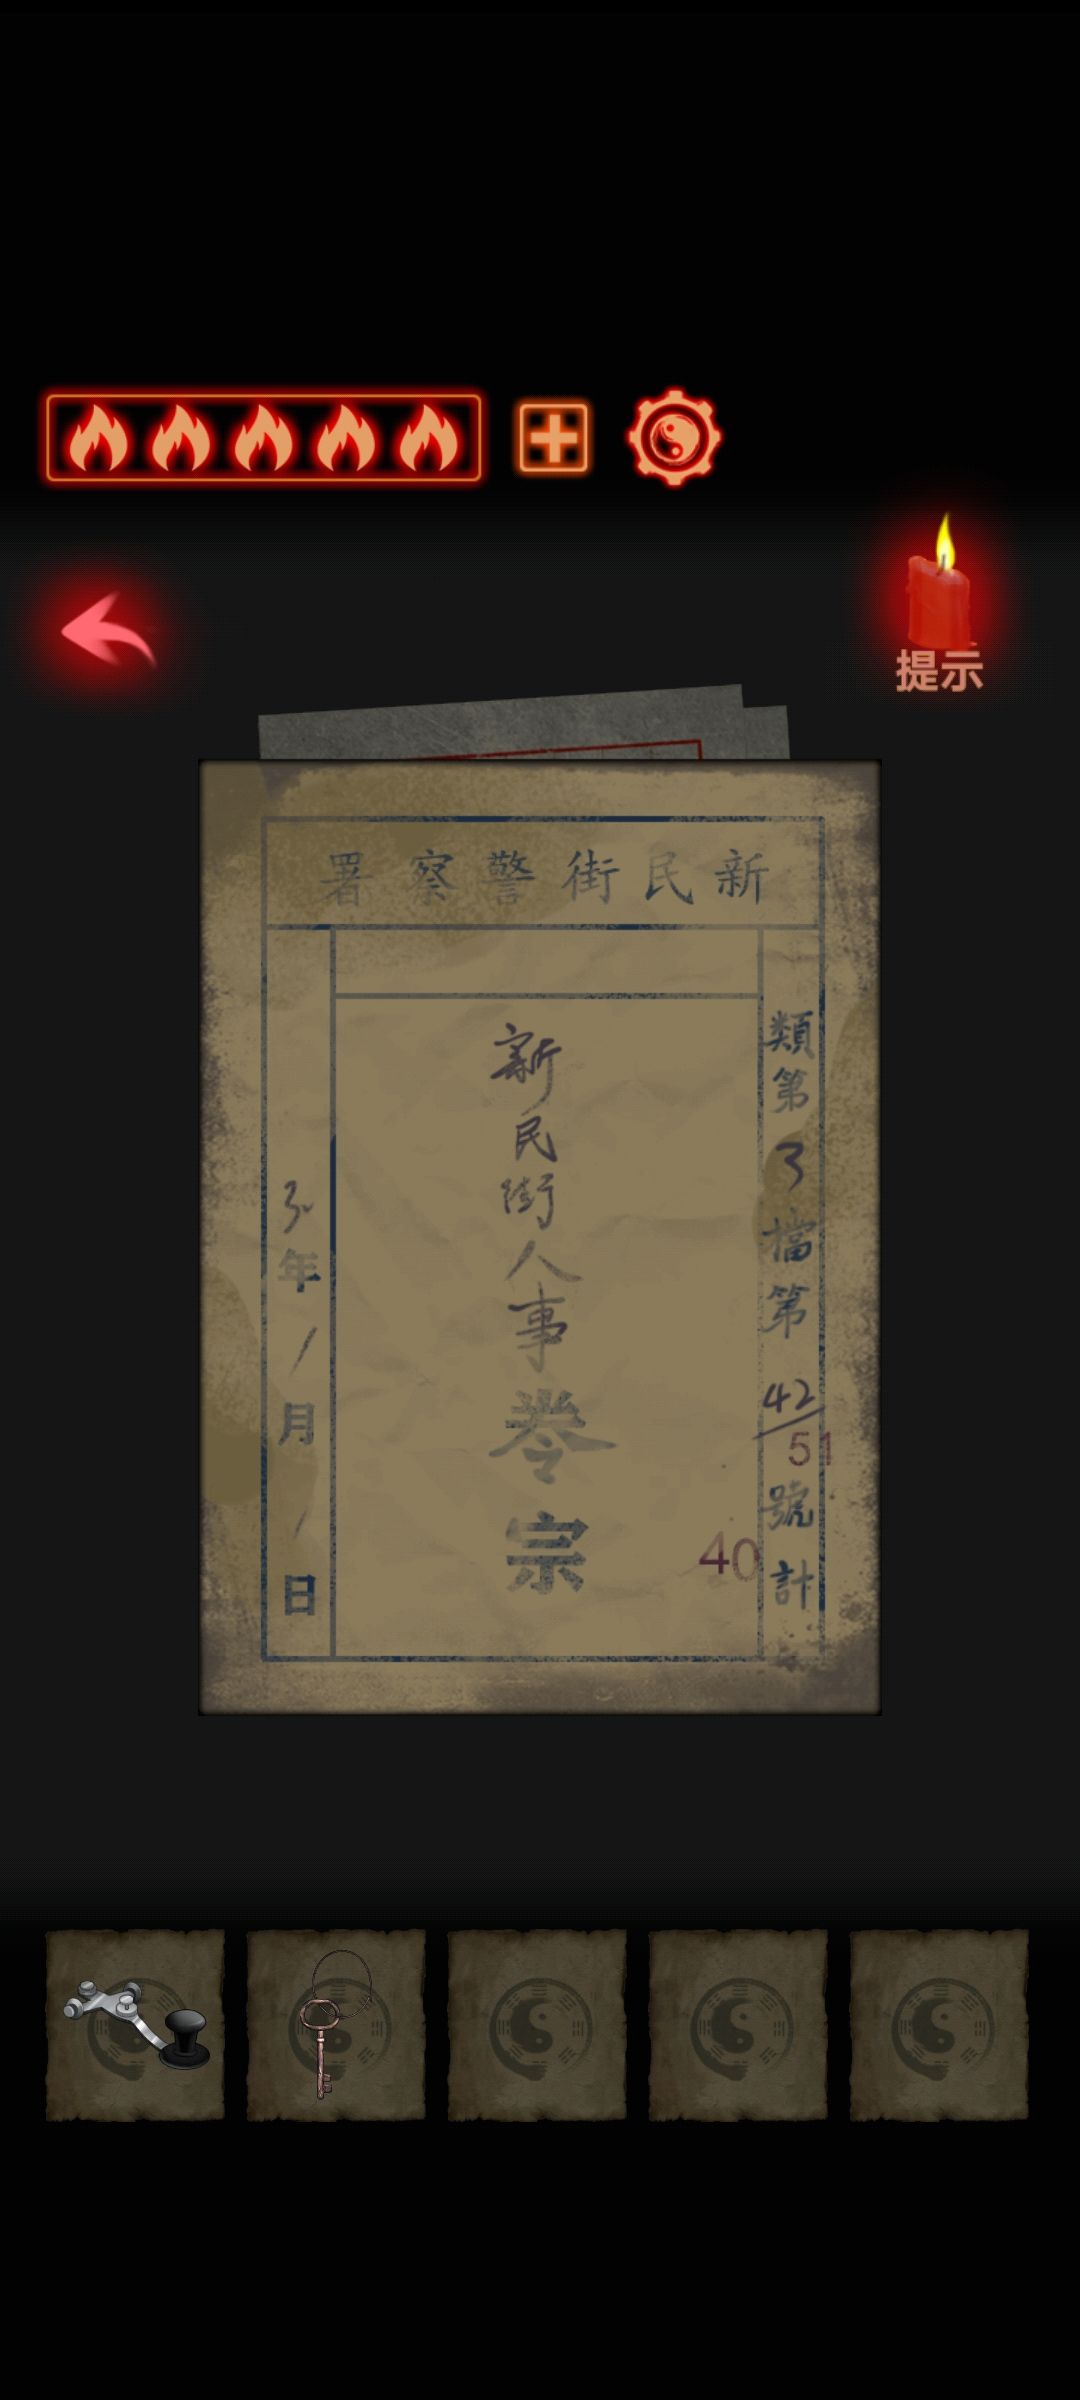 提示
新民街警察署
類第3檔第42號計
51
40
新民街人事卷宗
3年1月1日